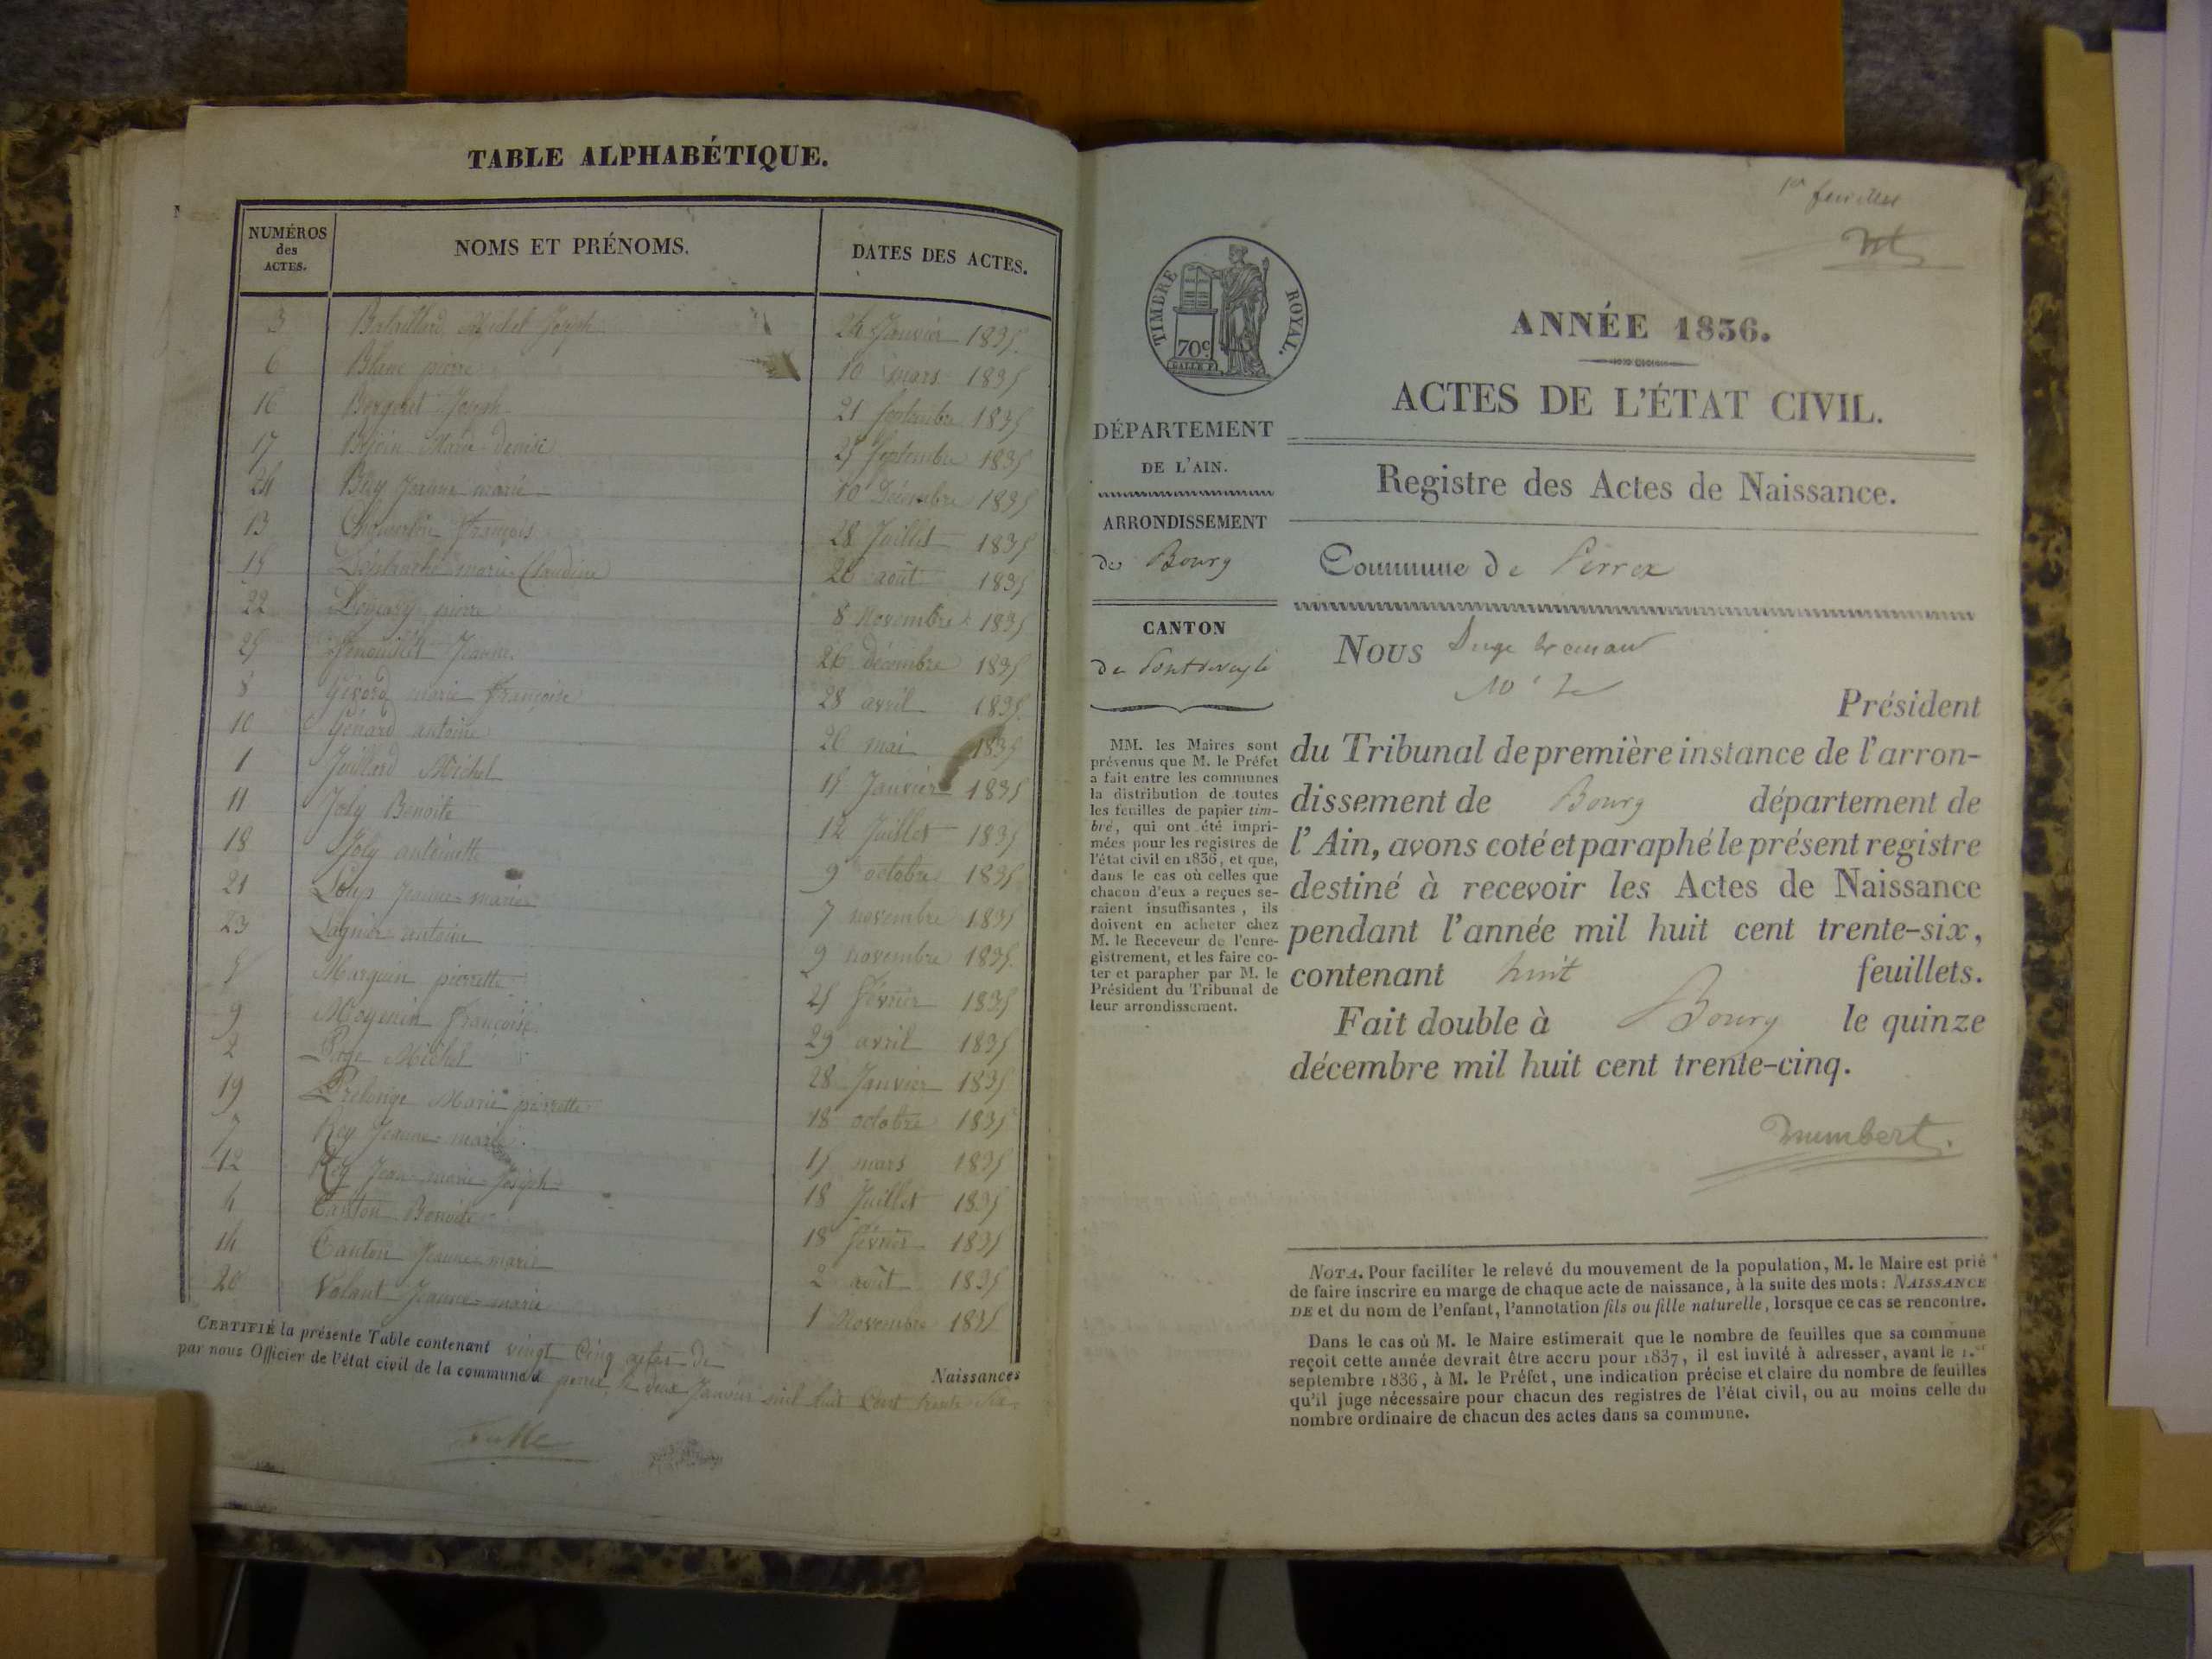 TABLE ALPHABÉTIQUE.
NUMÉROS
des
ACTES.
NOMS ET PRÉNOMS.
DATES DES ACTES.
3 Michel Joseph 24 Janvier 1835.
6 Blanc pierre 10 mars 1835
16 Joseph 21 Septembre 1835
17 Marie-denise 25 Septembre 1835
24 Jeanne marie 10 Décembre 1835
13 François 28 Juillet 1835
15 marie-Claudine 20 août 1835
22 pierre 8 novembre 1835
25 Jeanne 26 décembre 1835
8 marie françoise 28 avril 1835.
10 antoine 20 mai 1835
1 Juillard Michel 15 Janvier 1835
11 Joly Benoite 12 Juillet 1835
18 Joly antoinette 9 octobre 1835
21 Jeanne-marie 7 novembre 1835
23 antoine 9 novembre 1835.
5 Marguin pierrette 25 février 1835
9 Moyenin françoise 29 avril 1835
2 Page Michel 28 Janvier 1835
19 Marie pierrette 18 octobre 1835
7 Rey Jeanne-marie 15 mars 1835
12 Rey Jean-marie-Joseph 18 Juillet 1835
4 Canton Benoite 18 février 1835
14 Canton Jeanne-marie 2 août 1835
20 Volant Jeanne-marie 1 Novembre 1835
CERTIFIÉ la présente Table contenant vingt Cinq actes de
Naissances
par nous Officier de l'état civil de la commune de perrex, le deux Janvier mil huit Cent trente Six.
1er feuillet
TIMBRE ROYAL.
70c
ANNÉE 1836.
ACTES DE L'ÉTAT CIVIL.
Registre des Actes de Naissance.
DÉPARTEMENT
DE L'AIN.
ARRONDISSEMENT
de Bourg
CANTON
de Pontdeveyle
MM. les Maires sont
prévenus que M. le Préfet
a fait entre les communes
la distribution de toutes
les feuilles de papier tim-
bré, qui ont été impri-
mées pour les registres de
l'état civil en 1836, et que,
dans le cas où celles que
chacun d'eux a reçues se-
raient insuffisantes, ils
doivent en acheter chez
M. le Receveur de l'enre-
gistrement, et les faire co-
ter et parapher par M. le
Président du Tribunal de
leur arrondissement.
Commune de Perrex
Nous Juge
Président
du Tribunal de première instance de l'arron-
dissement de Bourg département de
l'Ain, avons coté et paraphé le présent registre
destiné à recevoir les Actes de Naissance
pendant l'année mil huit cent trente-six,
contenant huit feuillets.
Fait double à Bourg le quinze
décembre mil huit cent trente-cinq.
NOTA. Pour faciliter le relevé du mouvement de la population, M. le Maire est prié
de faire inscrire en marge de chaque acte de naissance, à la suite des mots: NAISSANCE
DE et du nom de l'enfant, l'annotation fils ou fille naturelle, lorsque ce cas se rencontre.
Dans le cas où M. le Maire estimerait que le nombre de feuilles que sa commune
reçoit cette année devrait être accru pour 1837, il est invité à adresser, avant le 1.er
septembre 1836, à M. le Préfet, une indication précise et claire du nombre de feuilles
qu'il juge nécessaire pour chacun des registres de l'état civil, ou au moins celle du
nombre ordinaire de chacun des actes dans sa commune.